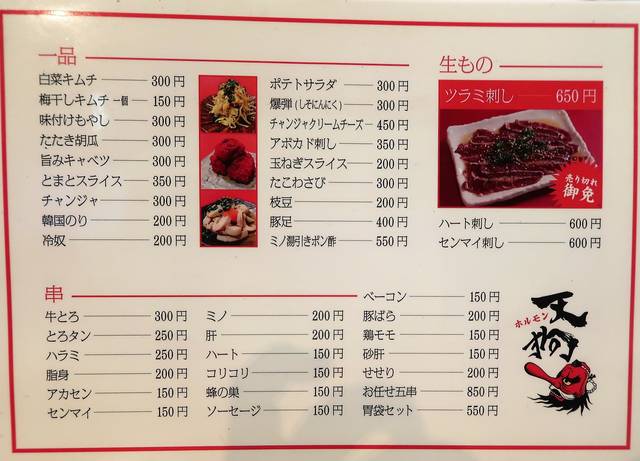 一品
白菜キムチ 300円
梅干しキムチ 一個 150円
味付けもやし 300円
たたき胡瓜 300円
旨みキャベツ 300円
とまとスライス 350円
チャンジャ 300円
韓国のり 200円
冷奴 200円
ポテトサラダ 300円
爆弾(しそにんにく) 300円
チャンジャクリームチーズ 450円
アボカド刺し 350円
玉ねぎスライス 200円
たこわさび 300円
枝豆 200円
豚足 400円
ミノ湯引きポン酢 550円
生もの
ツラミ刺し 650円
売り切れ
御免
ハート刺し 600円
センマイ刺し 600円
串
牛とろ 300円
とろタン 250円
ハラミ 250円
脂身 200円
アカセン 150円
センマイ 150円
ミノ 200円
肝 200円
ハート 150円
コリコリ 150円
蜂の巣 150円
ソーセージ 150円
ベーコン 150円
豚ばら 200円
鶏モモ 150円
砂肝 150円
せせり 200円
お任せ五串 850円
胃袋セット 550円
ホルモン
天狗